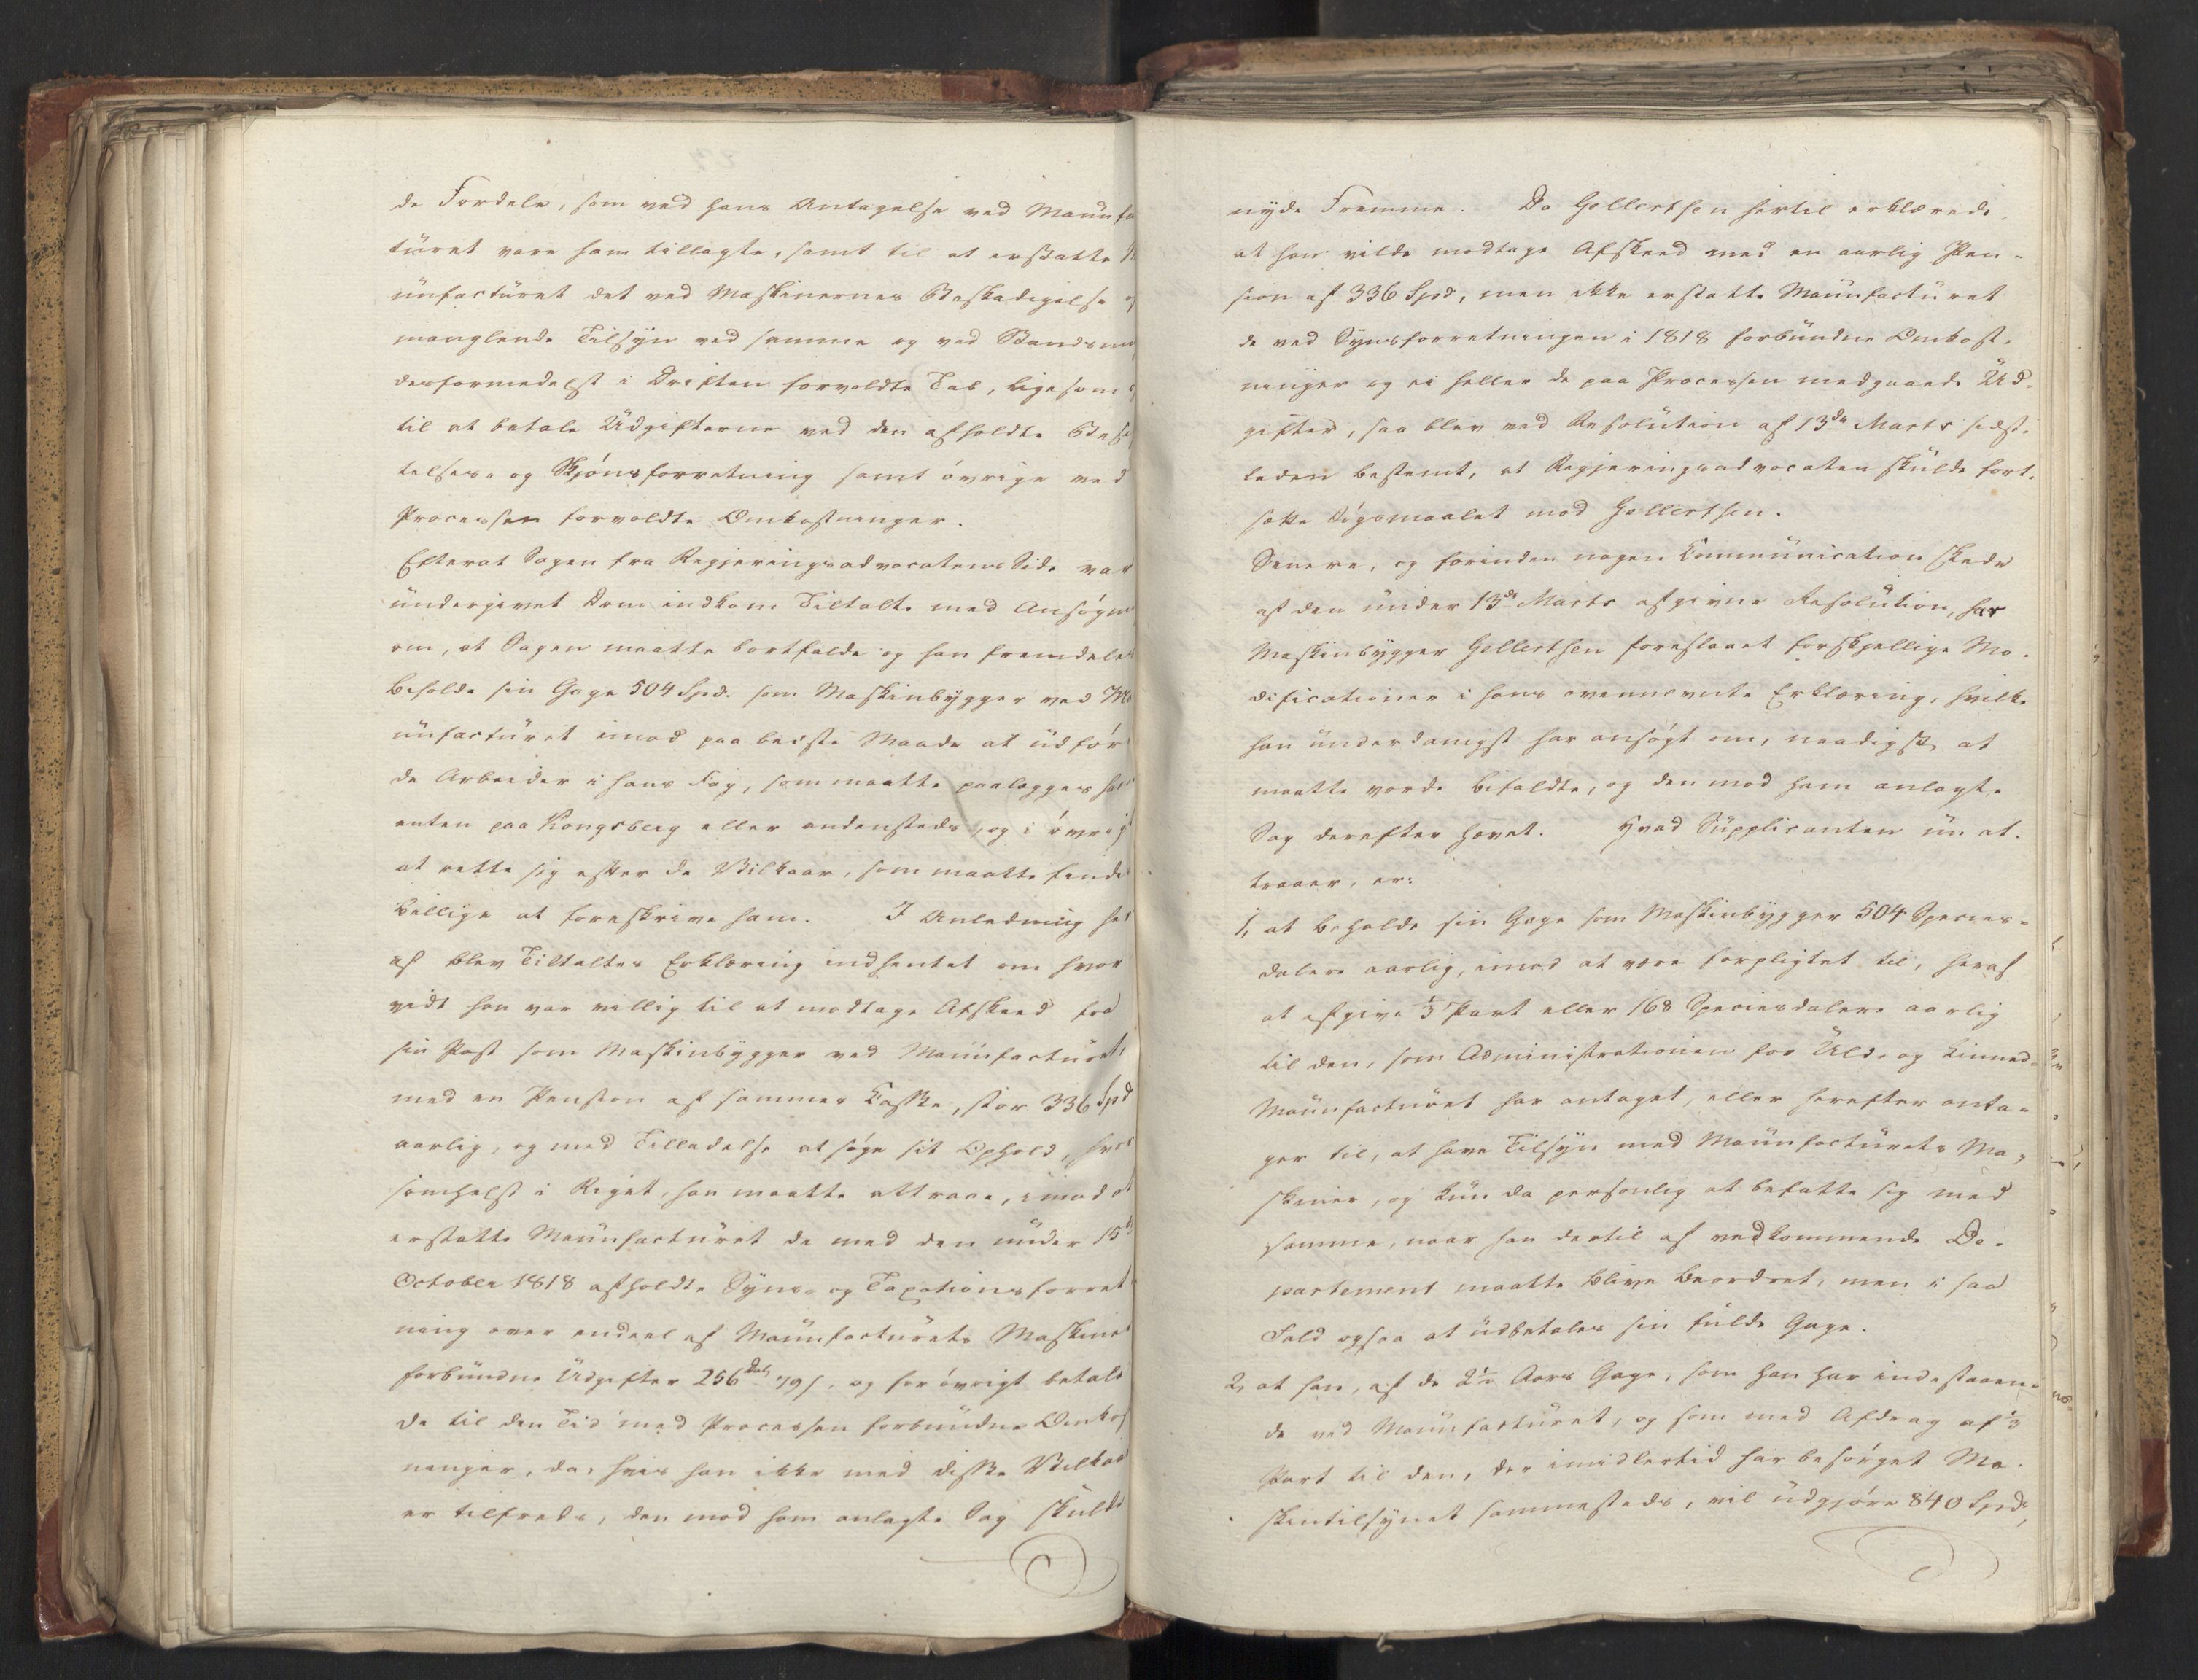 de Fordele, som ved hans Antagelse ved Manufa
cturet vare ham tillagte, samt til at erstatte M
anufacturet det ved Maskinernes Beskadigelse og
manglende Tilsyn ved samme og ved Standsning
desformedelst i Driften forvoldte Tab, ligesom
til at betale Udgifterne ved den afholdte Besig
telses- og Skjönsforretning samt övrige ved
Processen forvoldte Omkostninger.
Efterat Sagen fra Regjeringsadvocatens Side var
undergivet Dom indkom Tiltalte med Ansögning
om, at Sagen maatte bortfalde og han fremdeles
beholde sin Gage 504 Spd. som Maskinbygger ved Ma
nufacturet imod paa bedste Maade at udföre
de Arbeider i hans Fag, som maatte paalægges ham
enten paa Kongsberg eller andensteds, og i övrigt
at rette sig efter de Vilkaar, som maatte findes
billige at foreskrive ham. I Anledning her
af blev Tiltaltes Erklæring indhentet om hvor
vidt han var villig til at modtage Afskeed fra
sin Post som Maskinbygger ved Manufacturet,
med en Pension af sammes Casse, stor 336 Spd
aarlig, og med Tilladelse at söge sit Ophold, hvor
somhelst i Riget, han maatte attraae, imod at
erstatte Manufacturet de med den under 15de
October 1818 afholdte Syns- og Taxationsforret
ning over endeel af Manufacturets Maskiner
forbundne Udgifter 256 Dal, og for övrigt betale
de til den Tid med Processen forbundne Omkost
ninger, da, hvis han ikke med disse Vilkaar
er tilfreds, den mod ham anlagte Sag skulde
nyde Fremme. Da Gellertsen hertil erklærede,
at han vilde modtage Afskeed med en aarlig Pen-
sion af 336 Spd, men ikke erstatte Manufacturet
de ved Synsforretningen i 1818 forbundne Omkost-
ninger og ei heller de paa Processen medgaaede Ud-
gifter, saa blev ved Resolution af 13de Marts sidst-
leden bestemt, at Regjeringsadvocaten skulde fort-
sætte Sögsmaalet mod Gellertsen.
Senere, og forinden nogen Communication skede
af den under 13de Marts afgivne Resolution, har
Maskinbygger Gellertsen foreslaaet forskjellige Mo-
dificationer i hans ovennævnte Erklæring, hvilke
han underdanigst har ansögt om, naadigst at
maatte vorde bifaldte, og den mod ham anlagte
Sag derefter hævet. Hvad Supplicanten nu at-
traaer, er:
1, at beholde sin Gage som Maskinbygger 504 Species-
dalere aarlig, imod at være forpligtet til, heraf
at afgive 1/3 Part eller 168 Speciesdalere aarlig
til den, som Administrationen for Uld- og Linned-
Manufacturet har antaget, eller herefter anta-
ger til, at have Tilsyn med Manufacturets Ma-
skiner, og kun da personlig at befatte sig med
samme, naar han dertil af vedkommende De-
partement maatte blive beordret, men i saa
Fald ogsaa at udbetales sin fulde Gage.
2, at han, af de 2 1/2 Aars Gage, som han har indestaaen-
de ved Manufacturet, og som med Afdrag af 1/3
Part til den, der imidlertid har besörget Ma-
skintilsynet sammesteds, vil udgjöre 840 Spd,